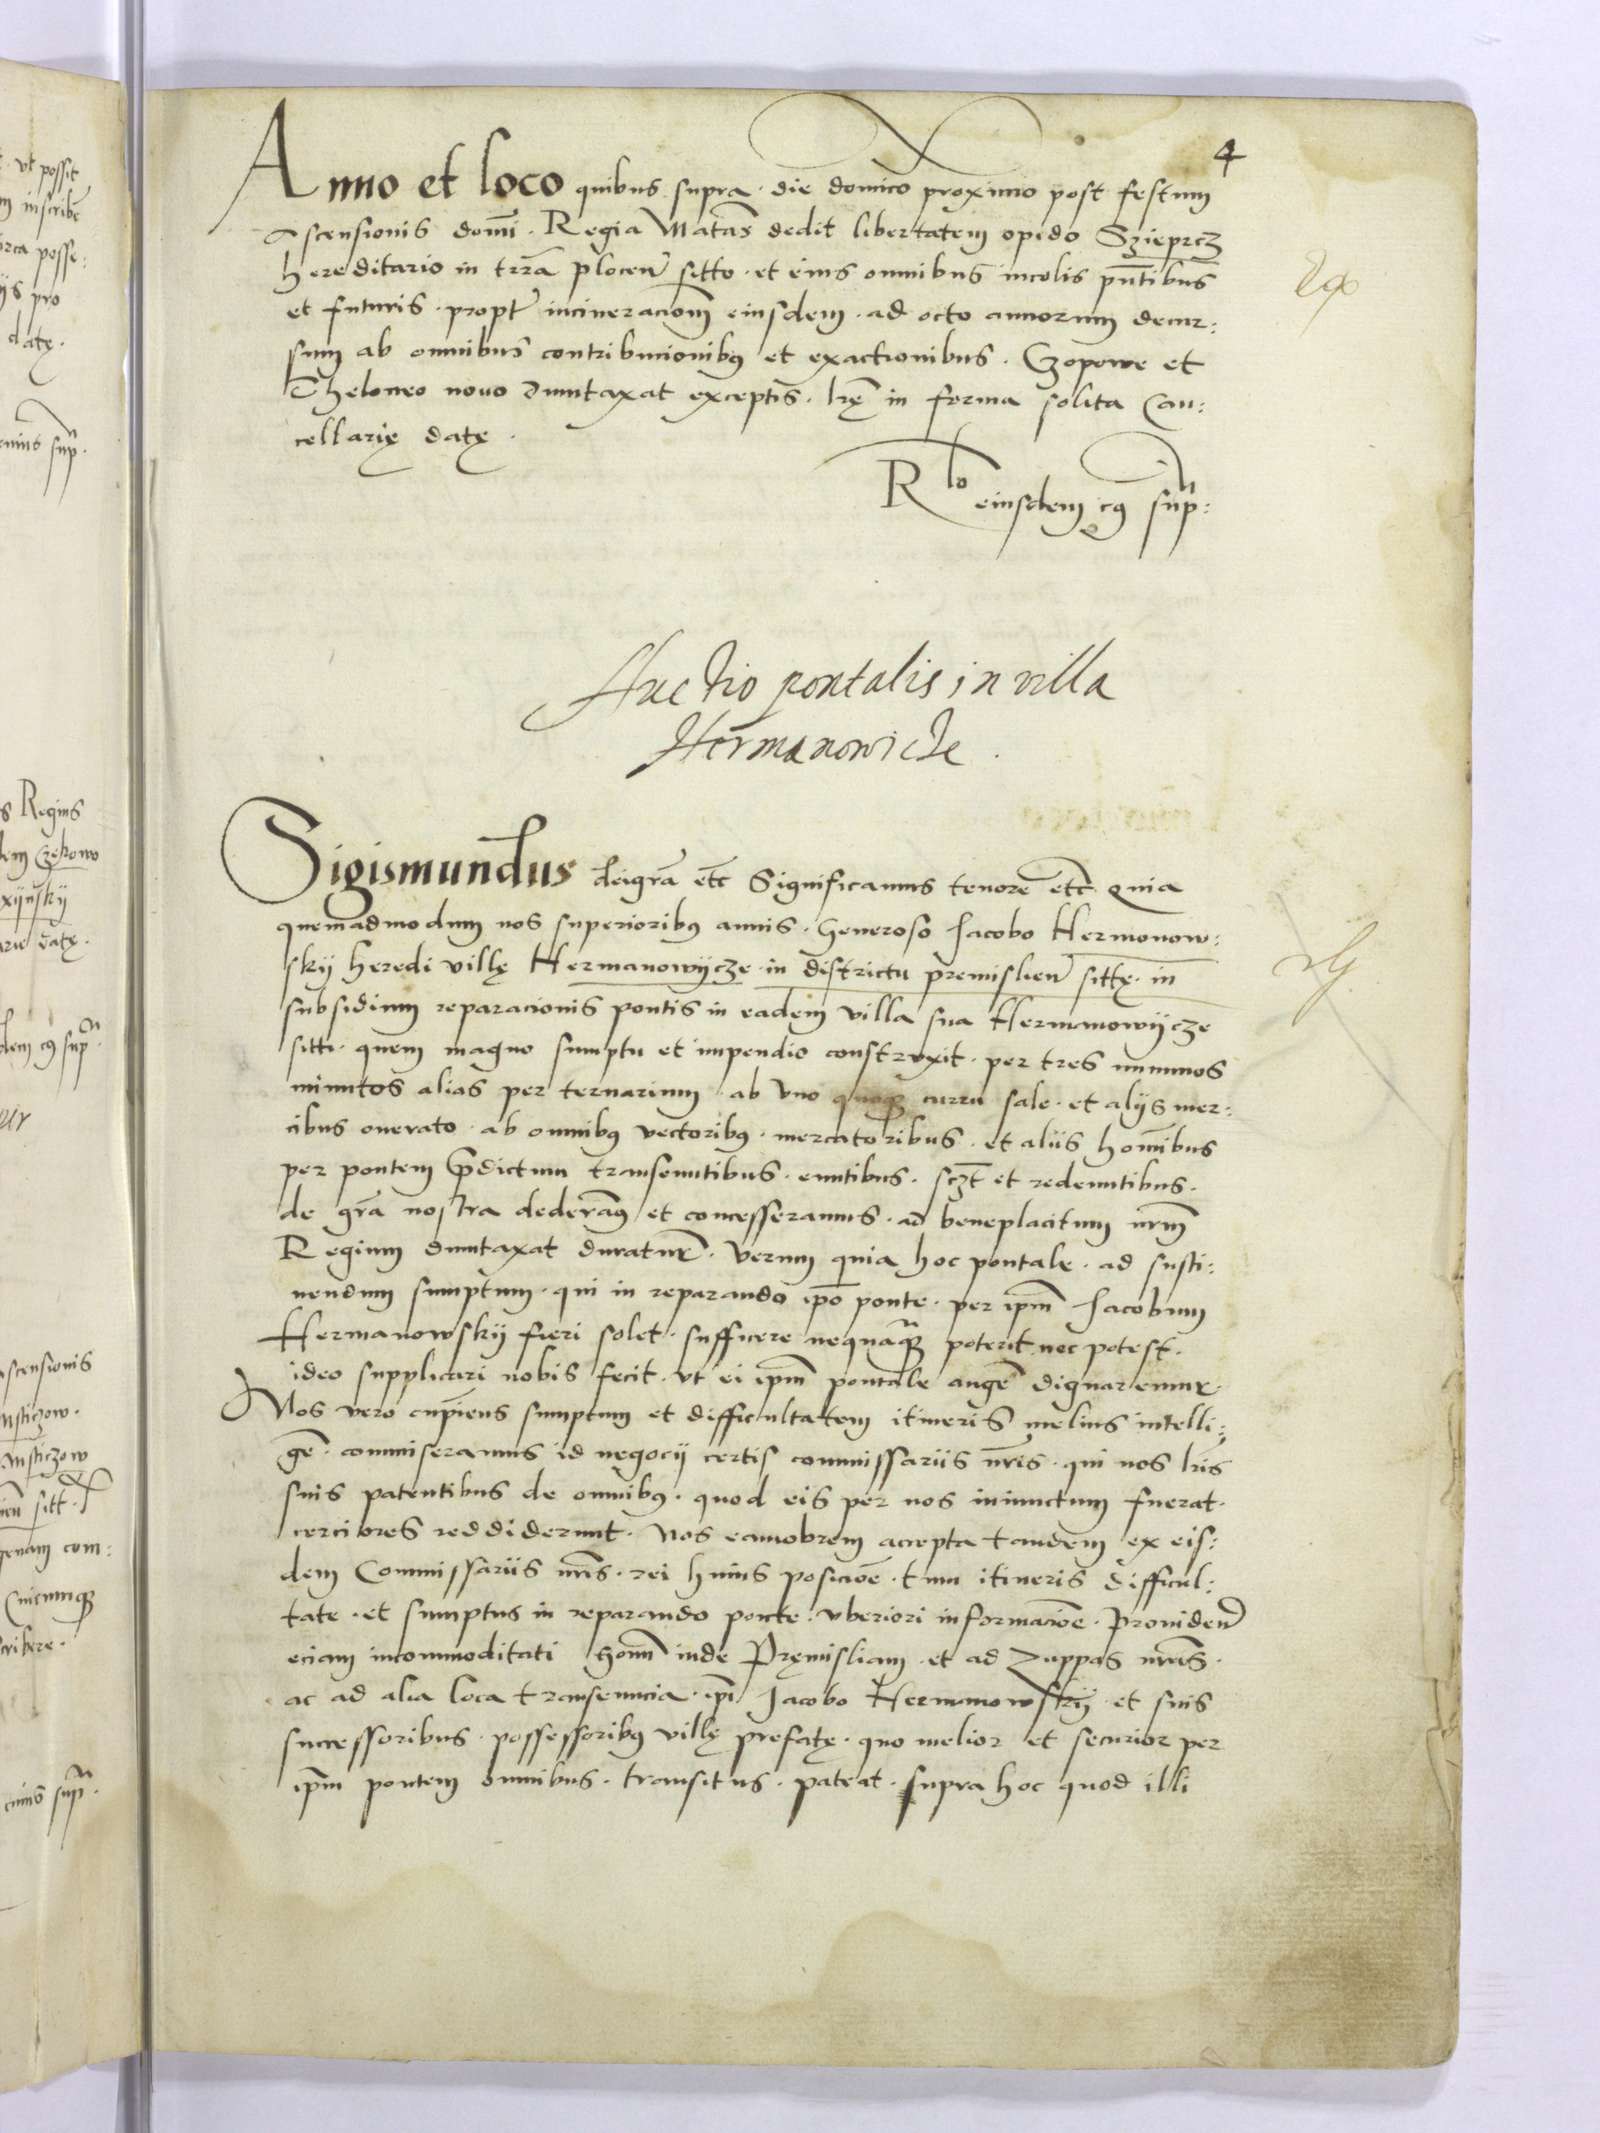 4
Anno et loco quibus supra · die domīco proximo post festum
Ascensionis domī · Regia Matas dedit libertatem opido Szieprcz
hereditario in trrā plocen̄ sitto · et eius omnibus incolis pn̄tibus
et futuris · propt incineracionē eiusdem · ad octo annorum decur:
sum ab omnibus contribucionibus et exactionibus · Czopowe et
Theloneo nouo duntaxat exceptis · lrę in forma solita Can:
cellarię datę ·
Rlo eiusdem cuius supra:
Auctio pontalis in villa
Hermanowicze .
Sigismundus dei gra etc Significamus tenore etc quia
quemadmodum nos superioribus annis · Generoso Jacobo Hermonow:
skij heredi villę Hermanowijcze · in districtu premislien̄ sittę · in
subsidium reparacionis pontis in eadem villa sua Hermanowijcze
sitti · quem magno sumptu et impendio construxit · per tres nummos
minutos alias per ternarium · ab vno quoque curru sale · et alijs mer:
cibus onerato · ab omnibus vectoribus · mercatoribus · et aliis hominibus
per pontem predictum transeuntibus · euntibus · sczt et redeuntibus ·
de gra nostra dederamus et concesseramus · ad beneplacitum nrm
Regium duntaxat duratur · Verum quia hoc pontale · ad susti:
nendum sumptum · qui in reparando ipo ponte · per ipm Jacobum
Hermanowskij fieri solet · sufficere nequaquam poterit nec potest ·
ideo supplicari nobis fecit · vt ei ipm pontale auge dignaremur ·
Nos vero cupiens sumptum et difficultatem itineris melius intelli:
ge · commiseramus id negocij certis commissariis nris · qui nos lris
suis patentibus de omnibus · quod eis per nos iniunctum fuerat ·
certiores reddiderunt · Nos eamobrem accepta tandem ex eis:
dem Commissariis nris · rei huius posicioe · tum itineris difficul:
tate · et sumptus in reparando ponte · vberiori informacioe · Prouiden
eciam incommoditati hom inde Pręmisliam · et ad Zuppas nras ·
ac ad alia loca transeuncia · ipi Jacobo Hermanowskij · et suis
successoribus · possessoribus villę prefatę · quo melior et securior per
ipm pontem omnibus · transitus · pateat · supra hoc quod illi